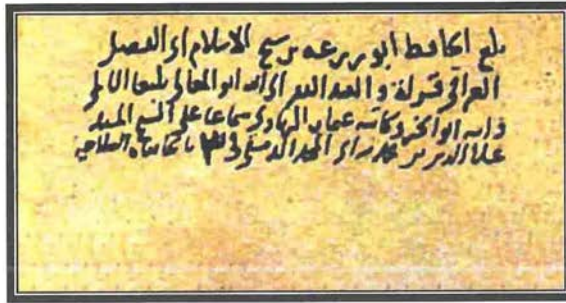 بلغ الحافظ ابو زرعه بن شيخ الاسلام ابي الفضل
العراقي قراة والعبد الفقير الى الله ابو المعالي
وابنه ابو الخير وكاتبه عثمان سماعا على الشيخ المسند
علا الدين بن ابي المجد الدمشقي في بالخانقاه الصلاحيه